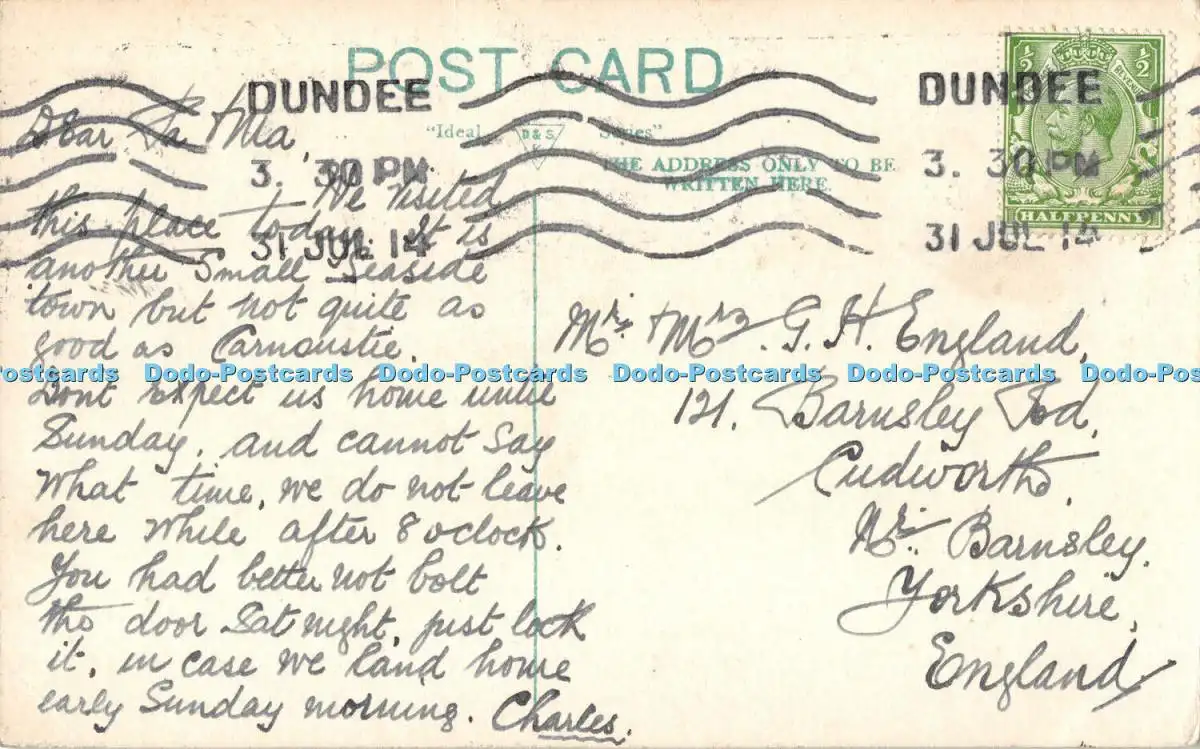 POST CARD
DUNDEE
3. 30 PM
31 JUL 14
DUNDEE
3. 30 PM
31 JUL 14
½ ½
REVENUE
HALFPENNY
"Ideal D&S Series"
THE ADDRESS ONLY TO BE
WRITTEN HERE.
Dear Pa + Ma,
We visited
this place today. It is
another small seaside
town but not quite as
good as Carnoustie.
Dont expect us home until
Sunday, and cannot say
what time, we do not leave
here while after 8 oclock.
You had better not bolt
the door Sat night, just lock
it, in case we land home
early Sunday morning. Charles.
Mr. + Mrs. G. H. England,
121. Barnsley Rd,
Cudworth,
Nr. Barnsley.
Yorkshire,
England.
ostcards Dodo-Postcards Dodo-Postcards Dodo-Postcards Dodo-Postcards Dodo-Pos